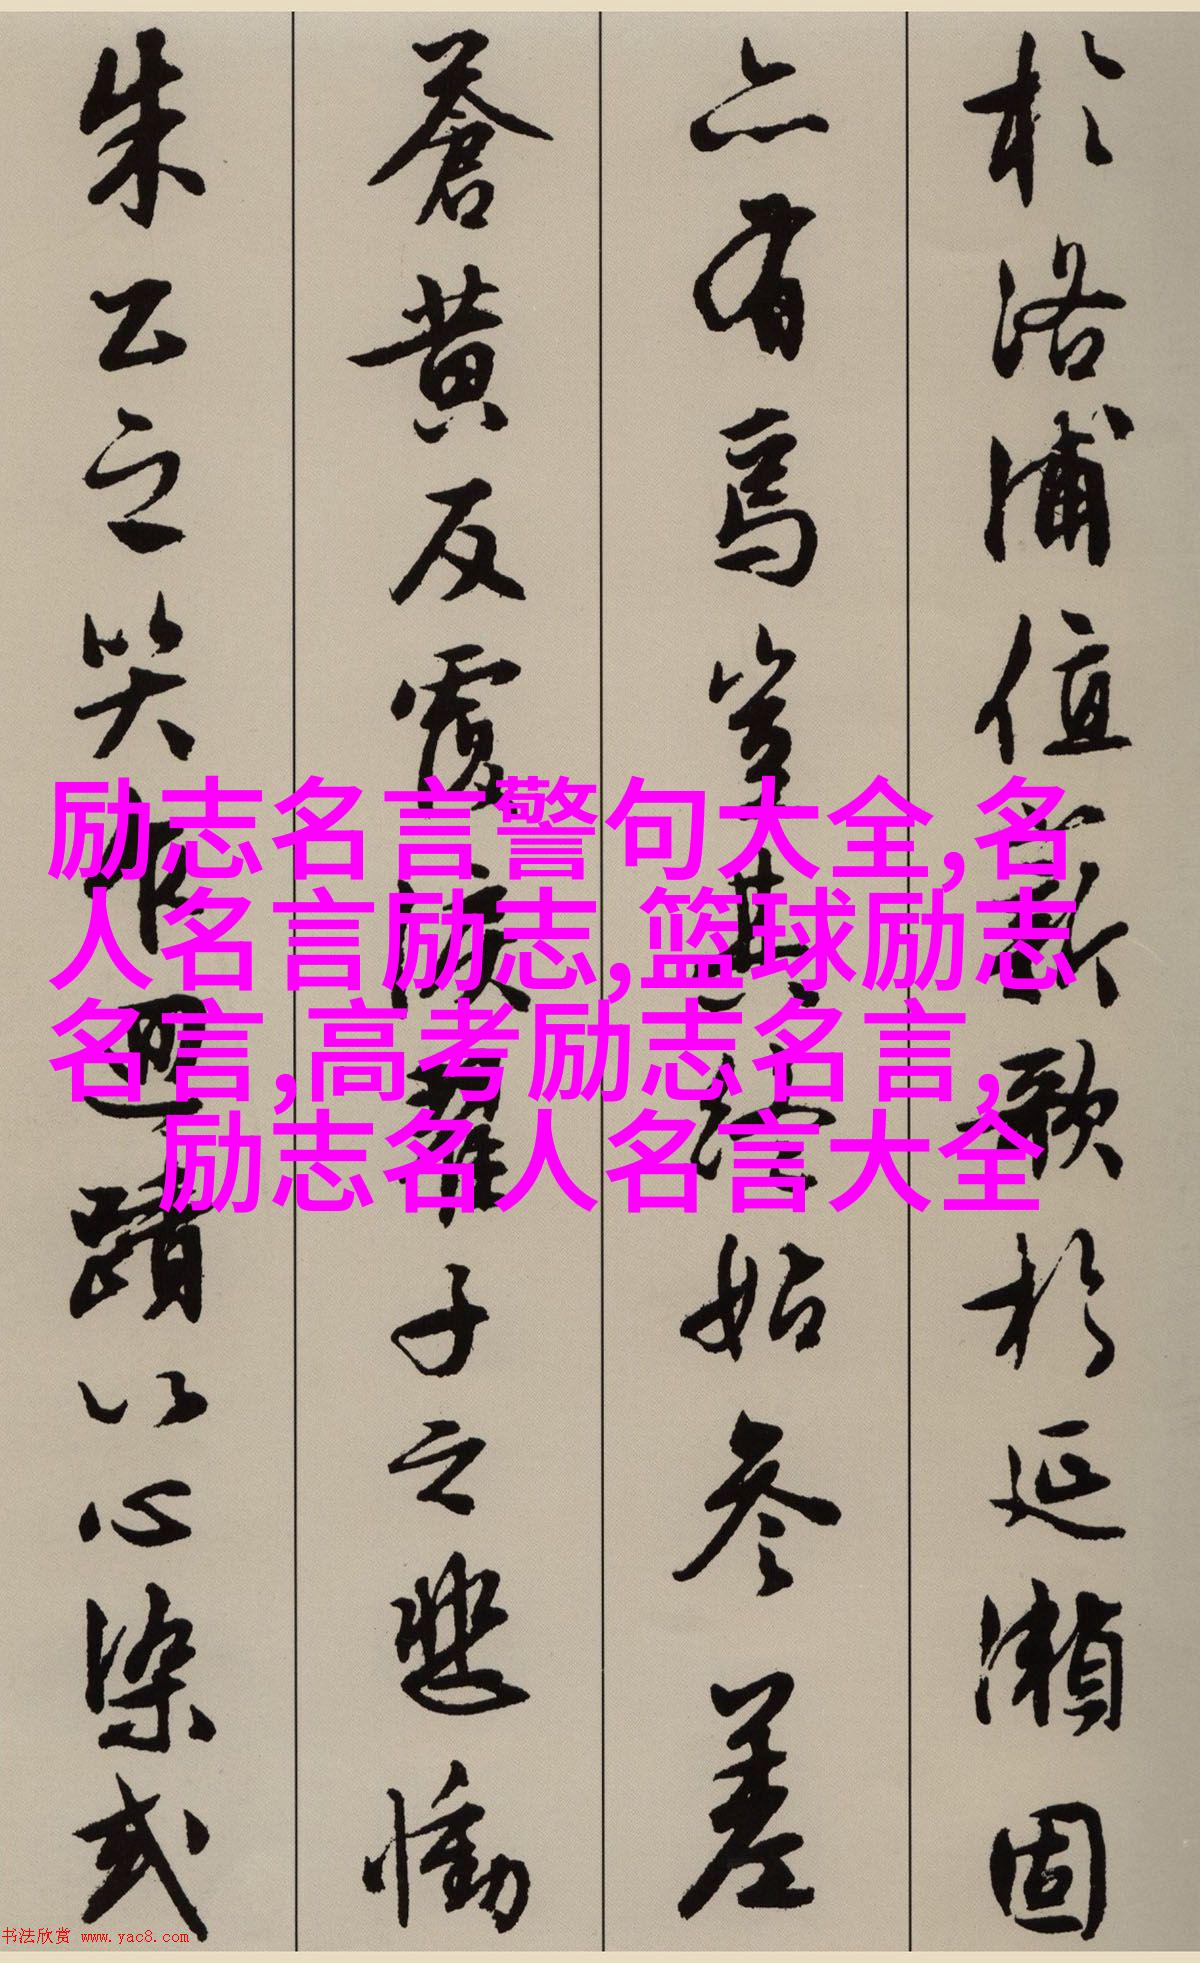 於洛浦值薪歌於延瀨固
亦有焉豈其終始參差
蒼黃反覆淚翟子之悲慟
朱公之哭乍迴蹟以心染或
励志名言警句大全,名
人名言励志,篮球励志
名言,高考励志名言,
励志名人名言大全
书法欣赏 www.yac8.com